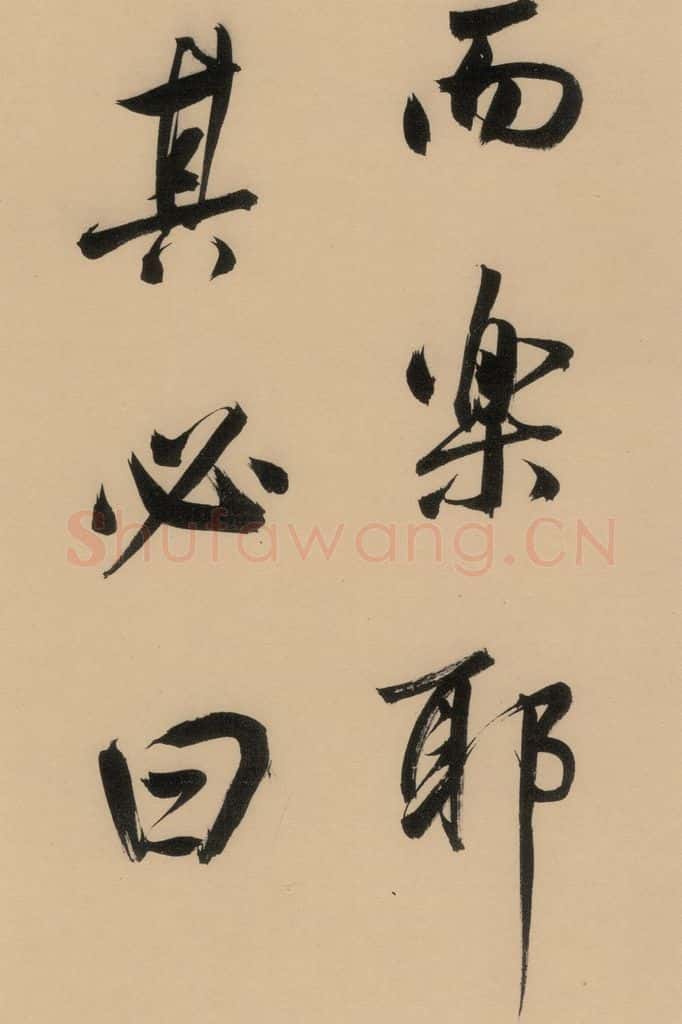 而楽耶
其必曰
Shufawang.CN